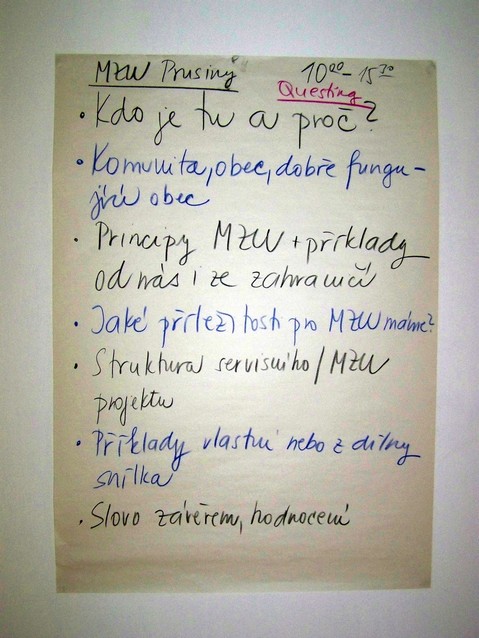 MZW Prusiny 10²⁰-15³⁰
Questing
• Kdo je tu a proč?
• Komunita, obec, dobře fungu-
jící obec
• Principy MZW + příklady
od nás i ze zahraničí
• Jaké příležitosti pro MZW máme?
• Struktura servisního / MZW
projektu
• Příklady vlastní nebo z dílny
snílka
• Slovo závěrem, hodnocení